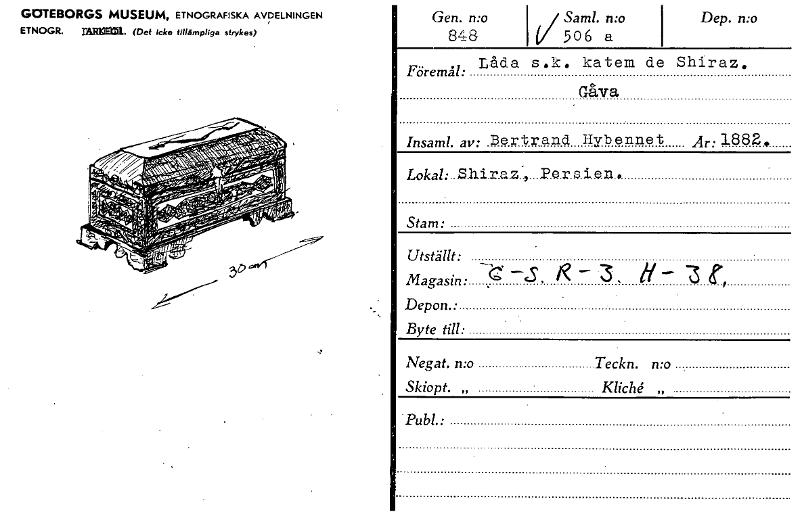 GÖTEBORGS MUSEUM, ETNOGRAFISKA AVDELNINGEN
ETNOGR. ARKEOL. (Det icke tillämpliga strykes)
30 cm
Gen. n:o
848
Saml. n:o
506 a
Dep. n:o
Föremål: Låda s.k. katem de Shiraz.
Gåva
Insaml. av: Bertrand Hybennet År: 1882.
Lokal: Shiraz, Persien.
Stam:
Utställt:
Magasin: G-S. R-3. H-38,
Depon.:
Byte till:
Negat. n:o Teckn. n:o
Skiopt. „ Kliché „
Publ.: